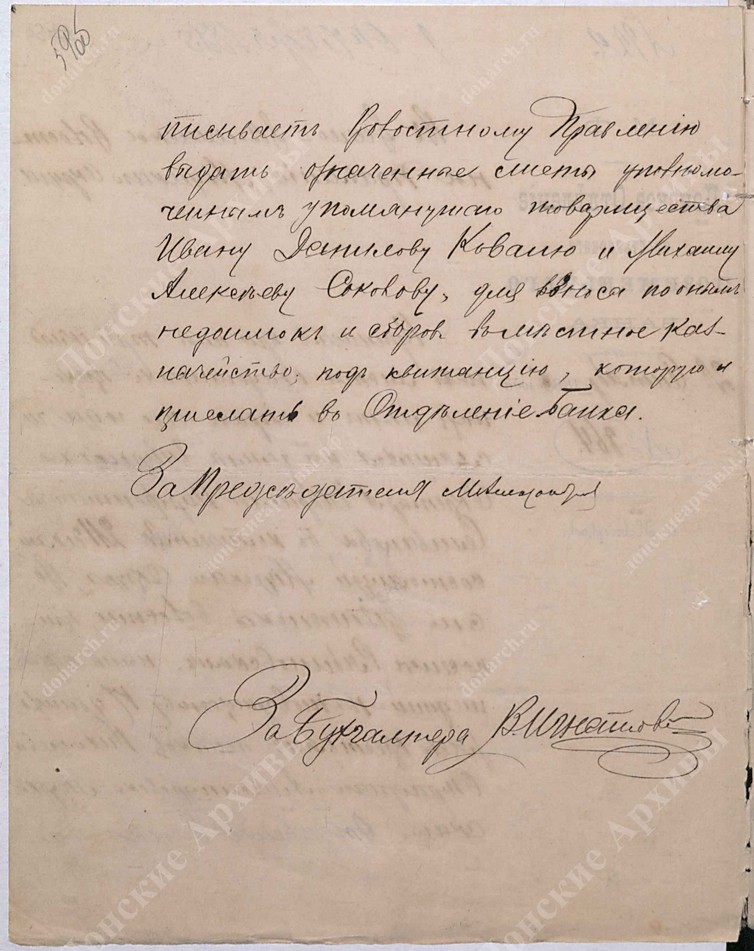 595
тисываетъ Волостному Правленію
выдать означенные листы уполномо-
ченнымъ упомянутаго товарищества
Ивану Данилову Ковалю и Михаилу
Алексѣеву Соколову, для взноса по онымъ
недоимокъ и сборовъ въ мѣстное каз-
начейство, подъ квитанцію, которую и
прислать въ Отдѣленіе Банка.
За Предсѣдателя
За Бухгалтера В Игнатовъ